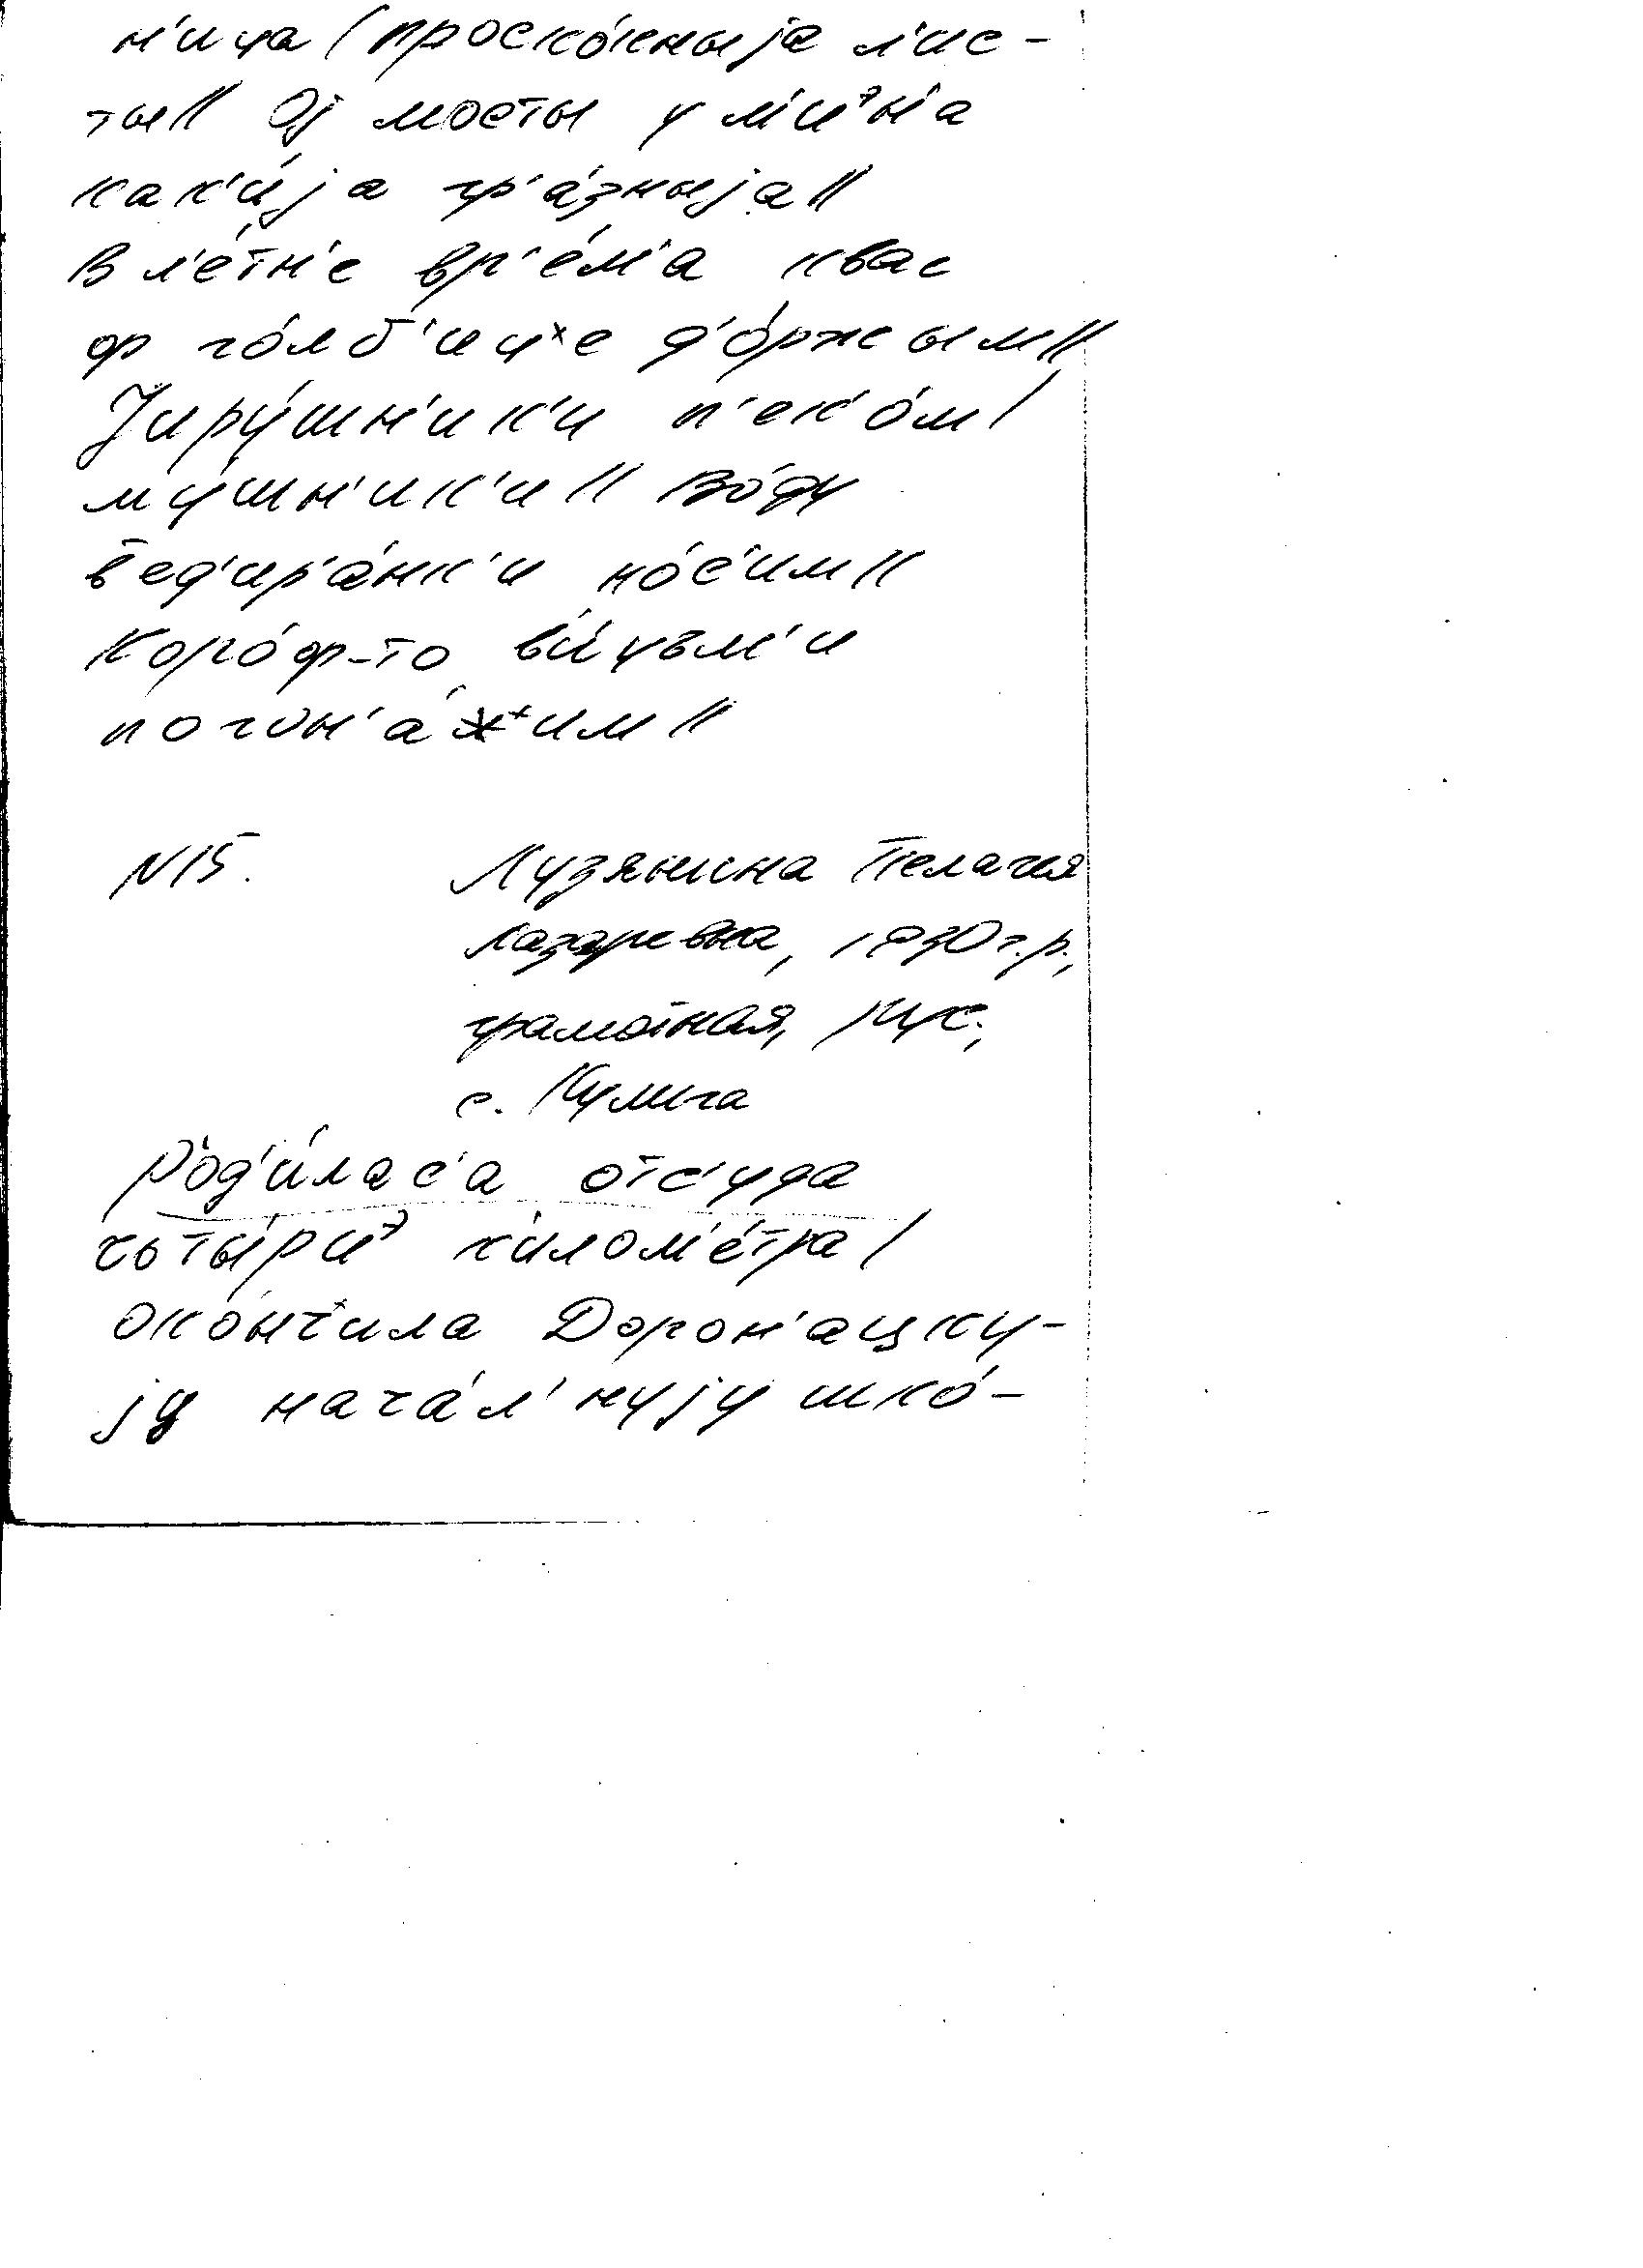 н'ица / проско́нныjа л'ис-
ты // Оj мосты у м'иэн'а
как'и́jа гр'а́зныjа //
В л'е́тн'е вр'е́м'а квас
ф го́лб'иц'е д'о́ржым //
Jиру́шн'ик'и п'ек'о́м /
му́шн'ик'и // Во́ду
в'ед'ир'а́нк'и но́с'им //
Коро́ф-то ви́цъм'и
погон'а́жим //
N15. Лузянина Пелагея
Лазаревна, 1930 г.р.,
грамотная,
с. Кулига
Род'и́лас'а отс'уда
чьты́риэ к'илом'е́тра /
око́нч'ила Дорон'ацку-
jу нача́л'нуjу шко́-